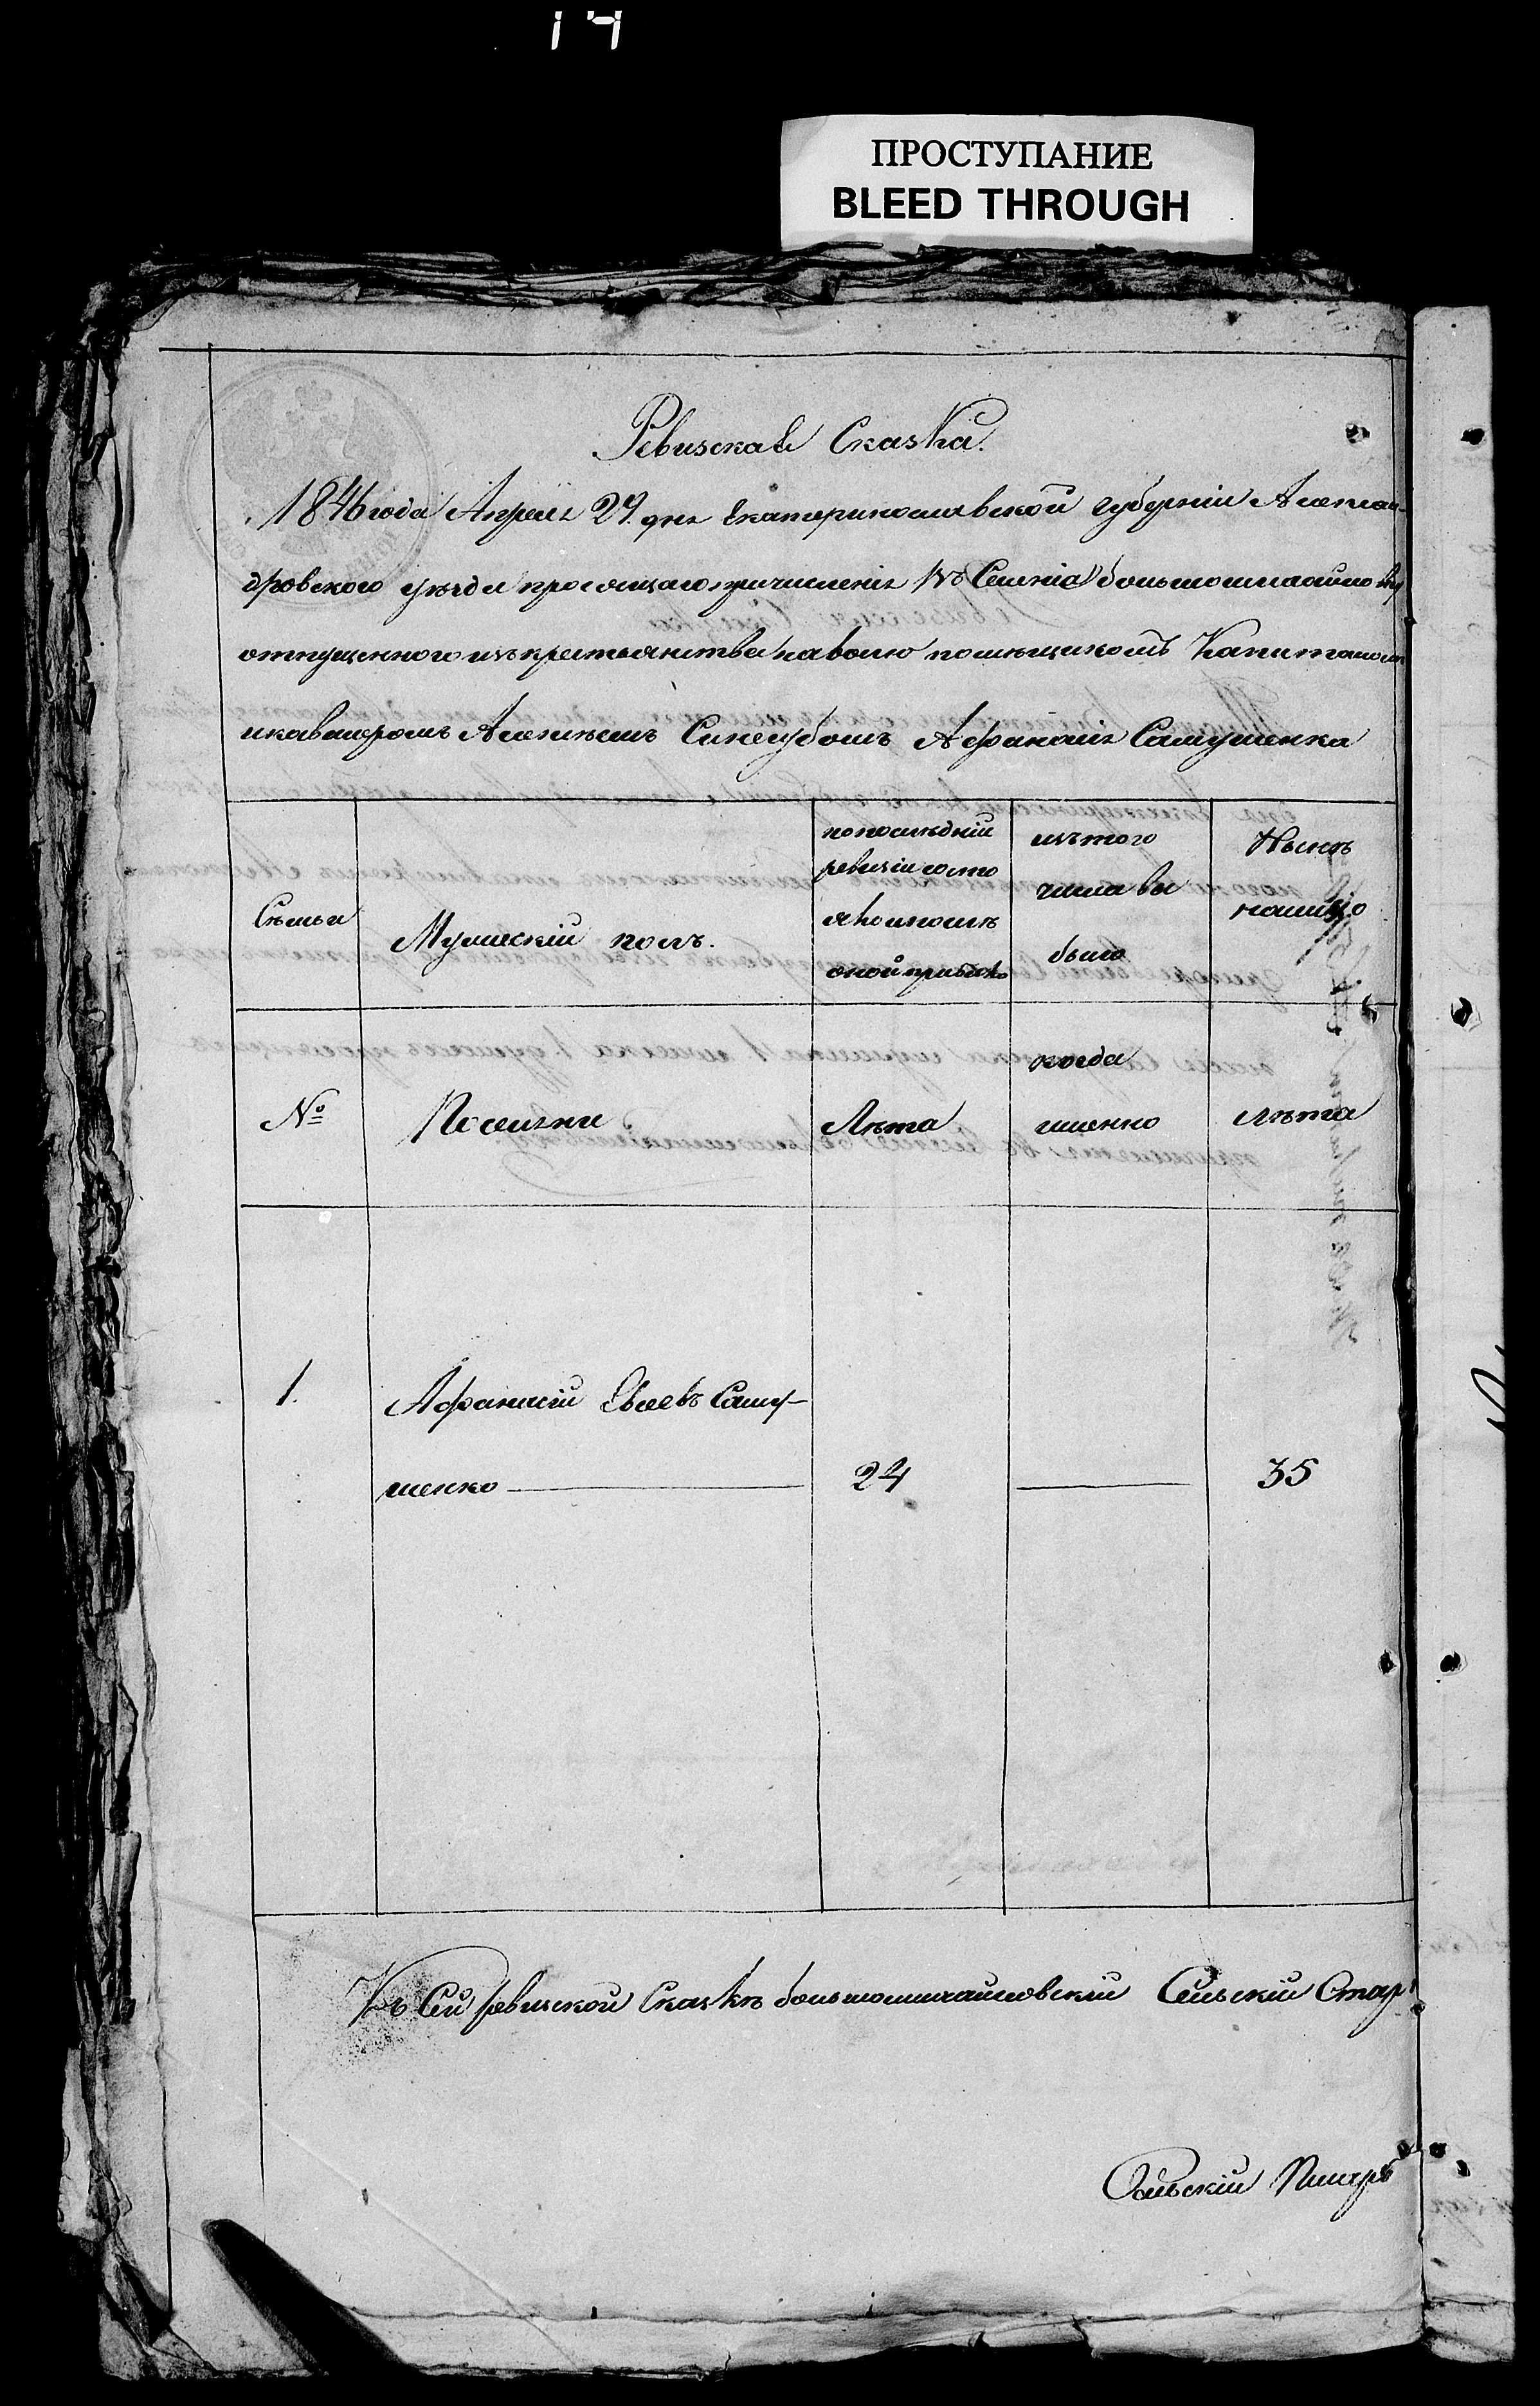 14
ПРОСТУПАНИЕ
BLEED THROUGH
Ревизская Сказка.
1846 года Апреля 29. дня Екатеринославской губерніи Алексан-
дровского уезда просящаго причисленія въ Сленія большомихайловку
отпущенного изъ крестьянства на волю помещикомъ Капитаном
и кавалеромъ Алексеемъ Синегубомъ Афанасія Самушенка
Семьи
Мужескій полъ.
по последній
ревизіи состо
яло и после
оной прибыло
изъ того
числа вы
было
Ныне
на лицо
№
Поселяне
Лета
когда
именно
лета
1.
Афанасій Евсевъ Саму-
шенко
24
35
Къ Сей ревизской Сказке большомихайловскій Сельскій Стар
Сельскій Писарь